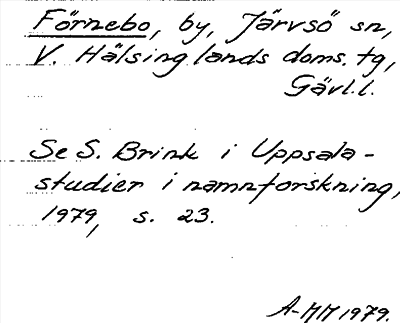 Förnebo, by, Järvsö sn,
V. Hälsinglands doms. tg,
Gävl.l.
Se S. Brink i Uppsala-
studier i namnforskning,
1979, s. 23.
A-MM 1979.